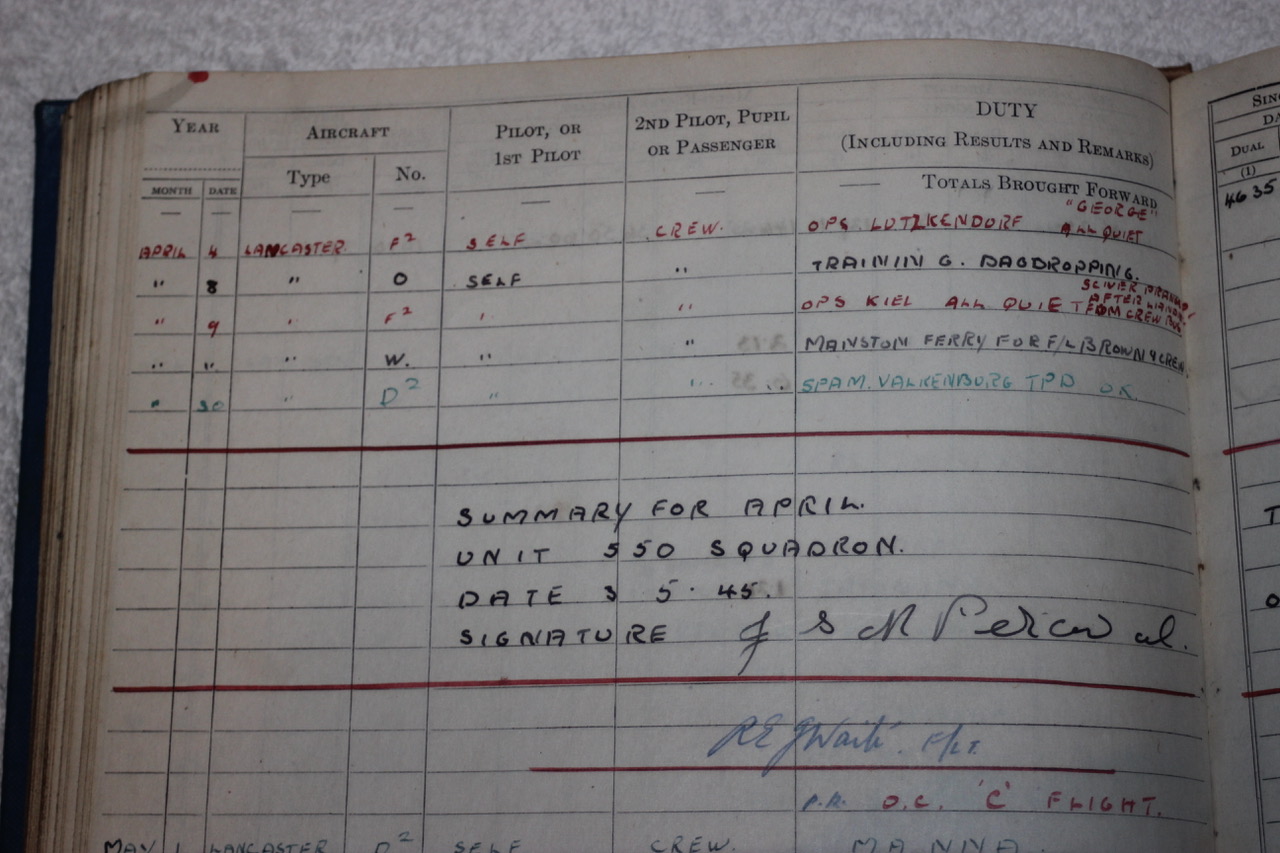 YEAR AIRCRAFT PILOT, OR 1ST PILOT 2ND PILOT, PUPIL OR PASSENGER DUTY (INCLUDING RESULTS AND REMARKS)
MONTH DATE Type No.
— — — — — — TOTALS BROUGHT FORWARD
APRIL 4 LANCASTER F² SELF CREW. OPS LUTZKENDORF "GEORGE" ALL QUIET
" 8 " O SELF " TRAINING. DAGDROPPING.
" 9 " F² " " OPS KIEL ALL QUIET AFTER FROM CREW
" " " W. " " MANSTON FERRY FOR F/L BROWN & CREW.
" 30 " D² " " " SPAM. VALKENBURG TPD OK.
SUMMARY FOR APRIL.
UNIT 550 SQUADRON.
DATE 3 5. 45.
SIGNATURE Percival.
F/LT.
O.C. 'C' FLIGHT.
MAY 1 LANCASTER D² SELF CREW. MANNA.
SING
DA
DUAL
(1)
46 35
T
O